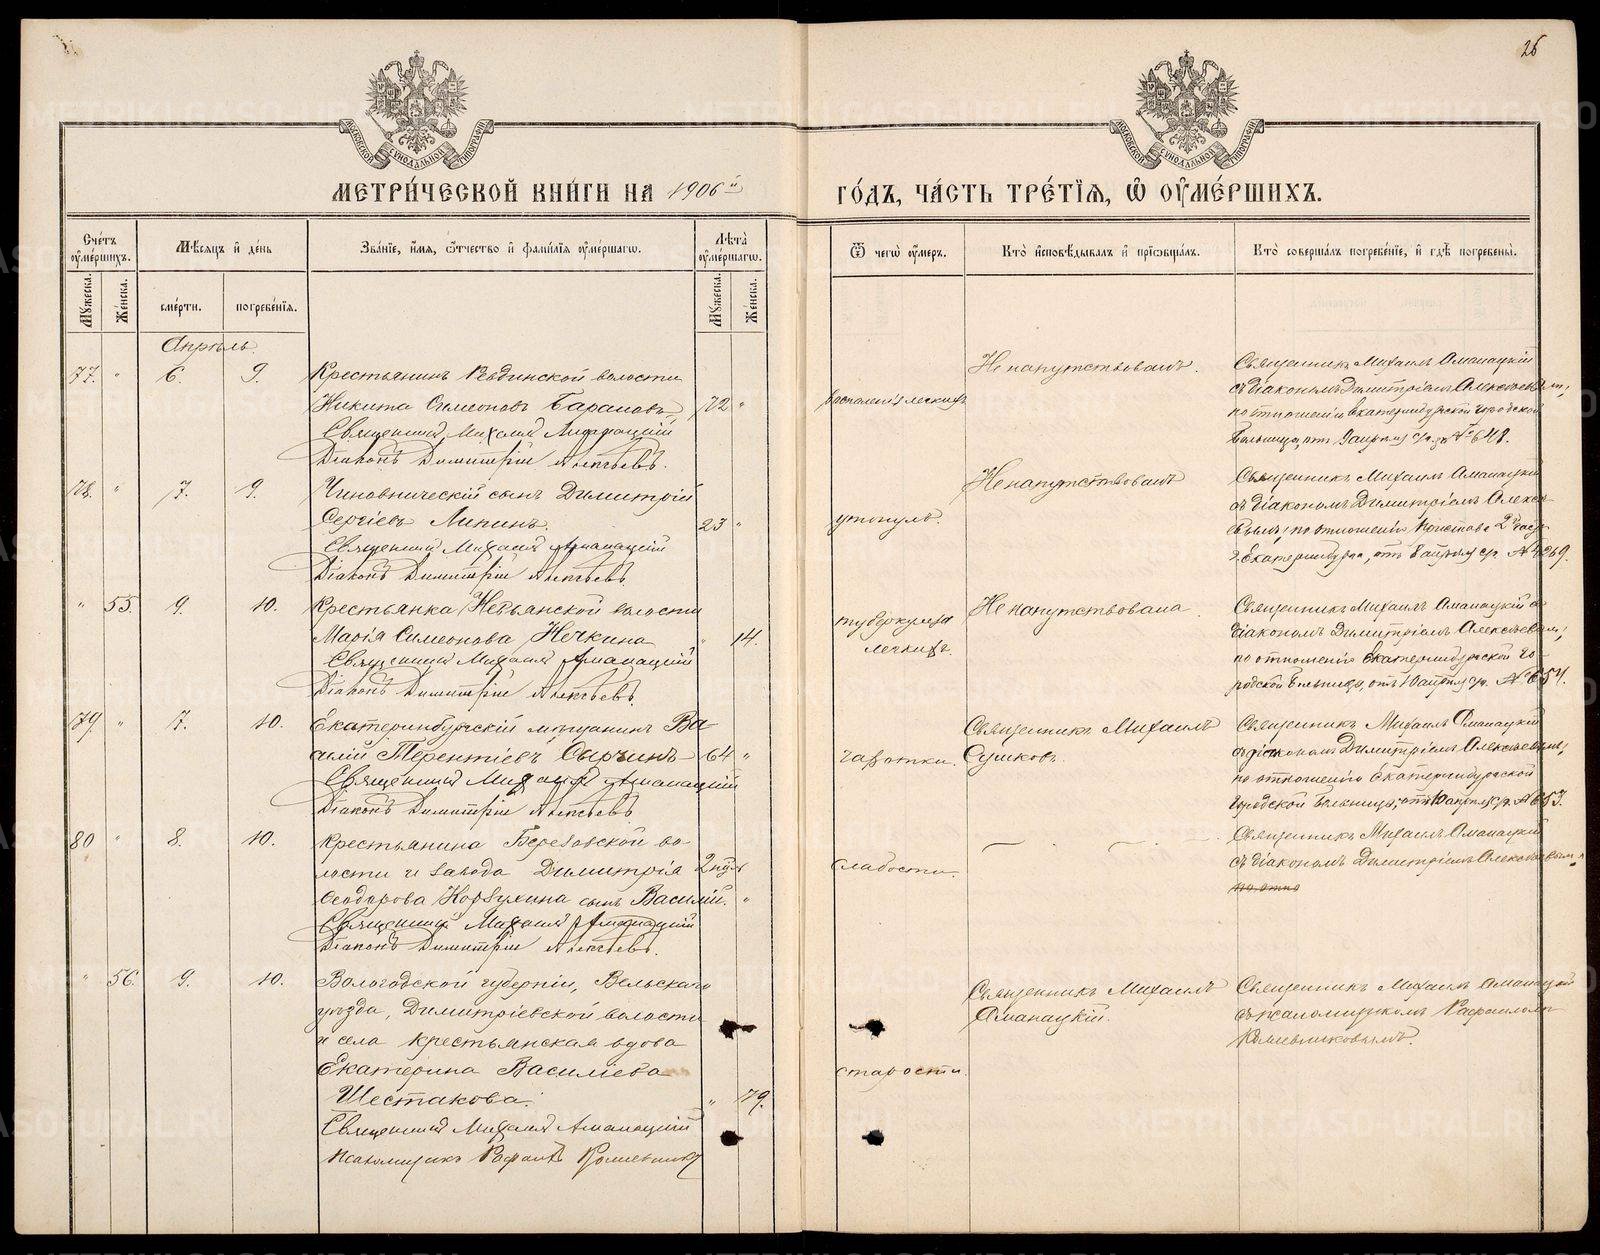 26
МОСКОВСКОЙ СѴНОДАЛЬНОЙ ТИПОГРАФІИ
МОСКОВСКОЙ СѴНОДАЛЬНОЙ ТИПОГРАФІИ
МЕТРИ́ЧЕСКОЙ КНИ́ГИ НА 1906й
ГО́ДЪ, ЧА́СТЬ ТРЕ́ТЇѦ, Ѡ҆ ОУ҆МЕ́РШИХЪ.
Сче́тъ оу҆ме́ршихъ.
Мѣ́сяцъ и҆ де́нь
Зва́нїе, и҆́мя, ѻ҆́тчество и҆ фами́лїя оу҆ме́ршагѡ.
Лѣ́та оу҆ме́ршагѡ.
Ѿ чегѡ̀ оу҆́меръ.
Кто̀ и҆сповѣ́дывалъ и҆ прїѡбща́лъ.
Кто̀ соверша́лъ погребе́нїе, и҆ гдѣ̀ погребены̀.
Му́жеска. Же́нска.
сме́рти. погребе́нїя.
Му́жеска. Же́нска.
Апрѣль.
77. " 6. 9.
Крестьянинъ Ревдинской волости
Никита Симеоновъ Барановъ, 72 "
Священникъ Михаилъ Аманацкій
Діаконъ Димитрій Алексѣевъ.
воспаленія легкихъ
Не напутствованъ.
Священникъ Михаилъ Аманацкій
съ діакономъ Димитріемъ Алексѣевымъ,
по отношенію Екатеринбургской городской
больницы, отъ 9 апрѣля с/г. за № 648.
78. " 7. 9.
Чиновническій сынъ Димитрій
Сергіевъ Липинъ. 23 "
Священникъ Михаилъ Аманацкій
Діаконъ Димитрій Алексѣевъ.
утонулъ.
Не напутствованъ
Священникъ Михаилъ Аманацкій
съ діакономъ Димитріемъ Алексѣ-
евымъ, по отношенію Пристава 2й части
г. Екатеринбурга, отъ 8 апрѣля с/г. № 4269.
" 55. 9. 10.
Крестьянка Невьянской волости
Марія Симеонова Нечкина " 14.
Священникъ Михаилъ Аманацкій
Діаконъ Димитрій Алексѣевъ.
туберкулеза
легкихъ.
Не напутствована
Священникъ Михаилъ Аманацкій съ
діакономъ Димитріемъ Алексѣевымъ,
по отношенію Екатеринбургской го-
родской больницы, отъ 10 апрѣля с/г. № 654.
79. " 7. 10.
Екатеринбургскій мѣщанинъ Ва-
силій Терентіевъ Сыркинъ 64 "
Священникъ Михаилъ Аманацкій
Діаконъ Димитрій Алексѣевъ.
чахотки.
Священникъ Михаилъ
Сушковъ.
Священникъ Михаилъ Аманацкій
съ діакономъ Димитріемъ Алексѣевымъ,
по отношенію Екатеринбургской
городской больницы, отъ 10 апрѣля с/г. № 653.
80 " 8. 10.
Крестьянина Березовской во-
лости и завода Димитрія
Ѳеодорова Корзухина сынъ Василій. "
Священникъ Михаилъ Аманацкій
Діаконъ Димитрій Алексѣевъ.
слабости.
Священникъ Михаилъ Аманацкій
съ діакономъ Димитріемъ Алексѣевымъ.
по отно
" 56. 9. 10.
Вологодской губерніи, Вельскаго
уѣзда, Димитріевской волости
и села крестьянская вдова
Екатерина Василіева
Шестакова. " 79.
Священникъ Михаилъ Аманацкій
Псаломщикъ Рафаилъ
старости.
Священникъ Михаилъ
Аманацкій.
Священникъ Михаилъ Аманацкій
съ псаломщикомъ Рафаиломъ
METRIKI.GASO-URAL.RU